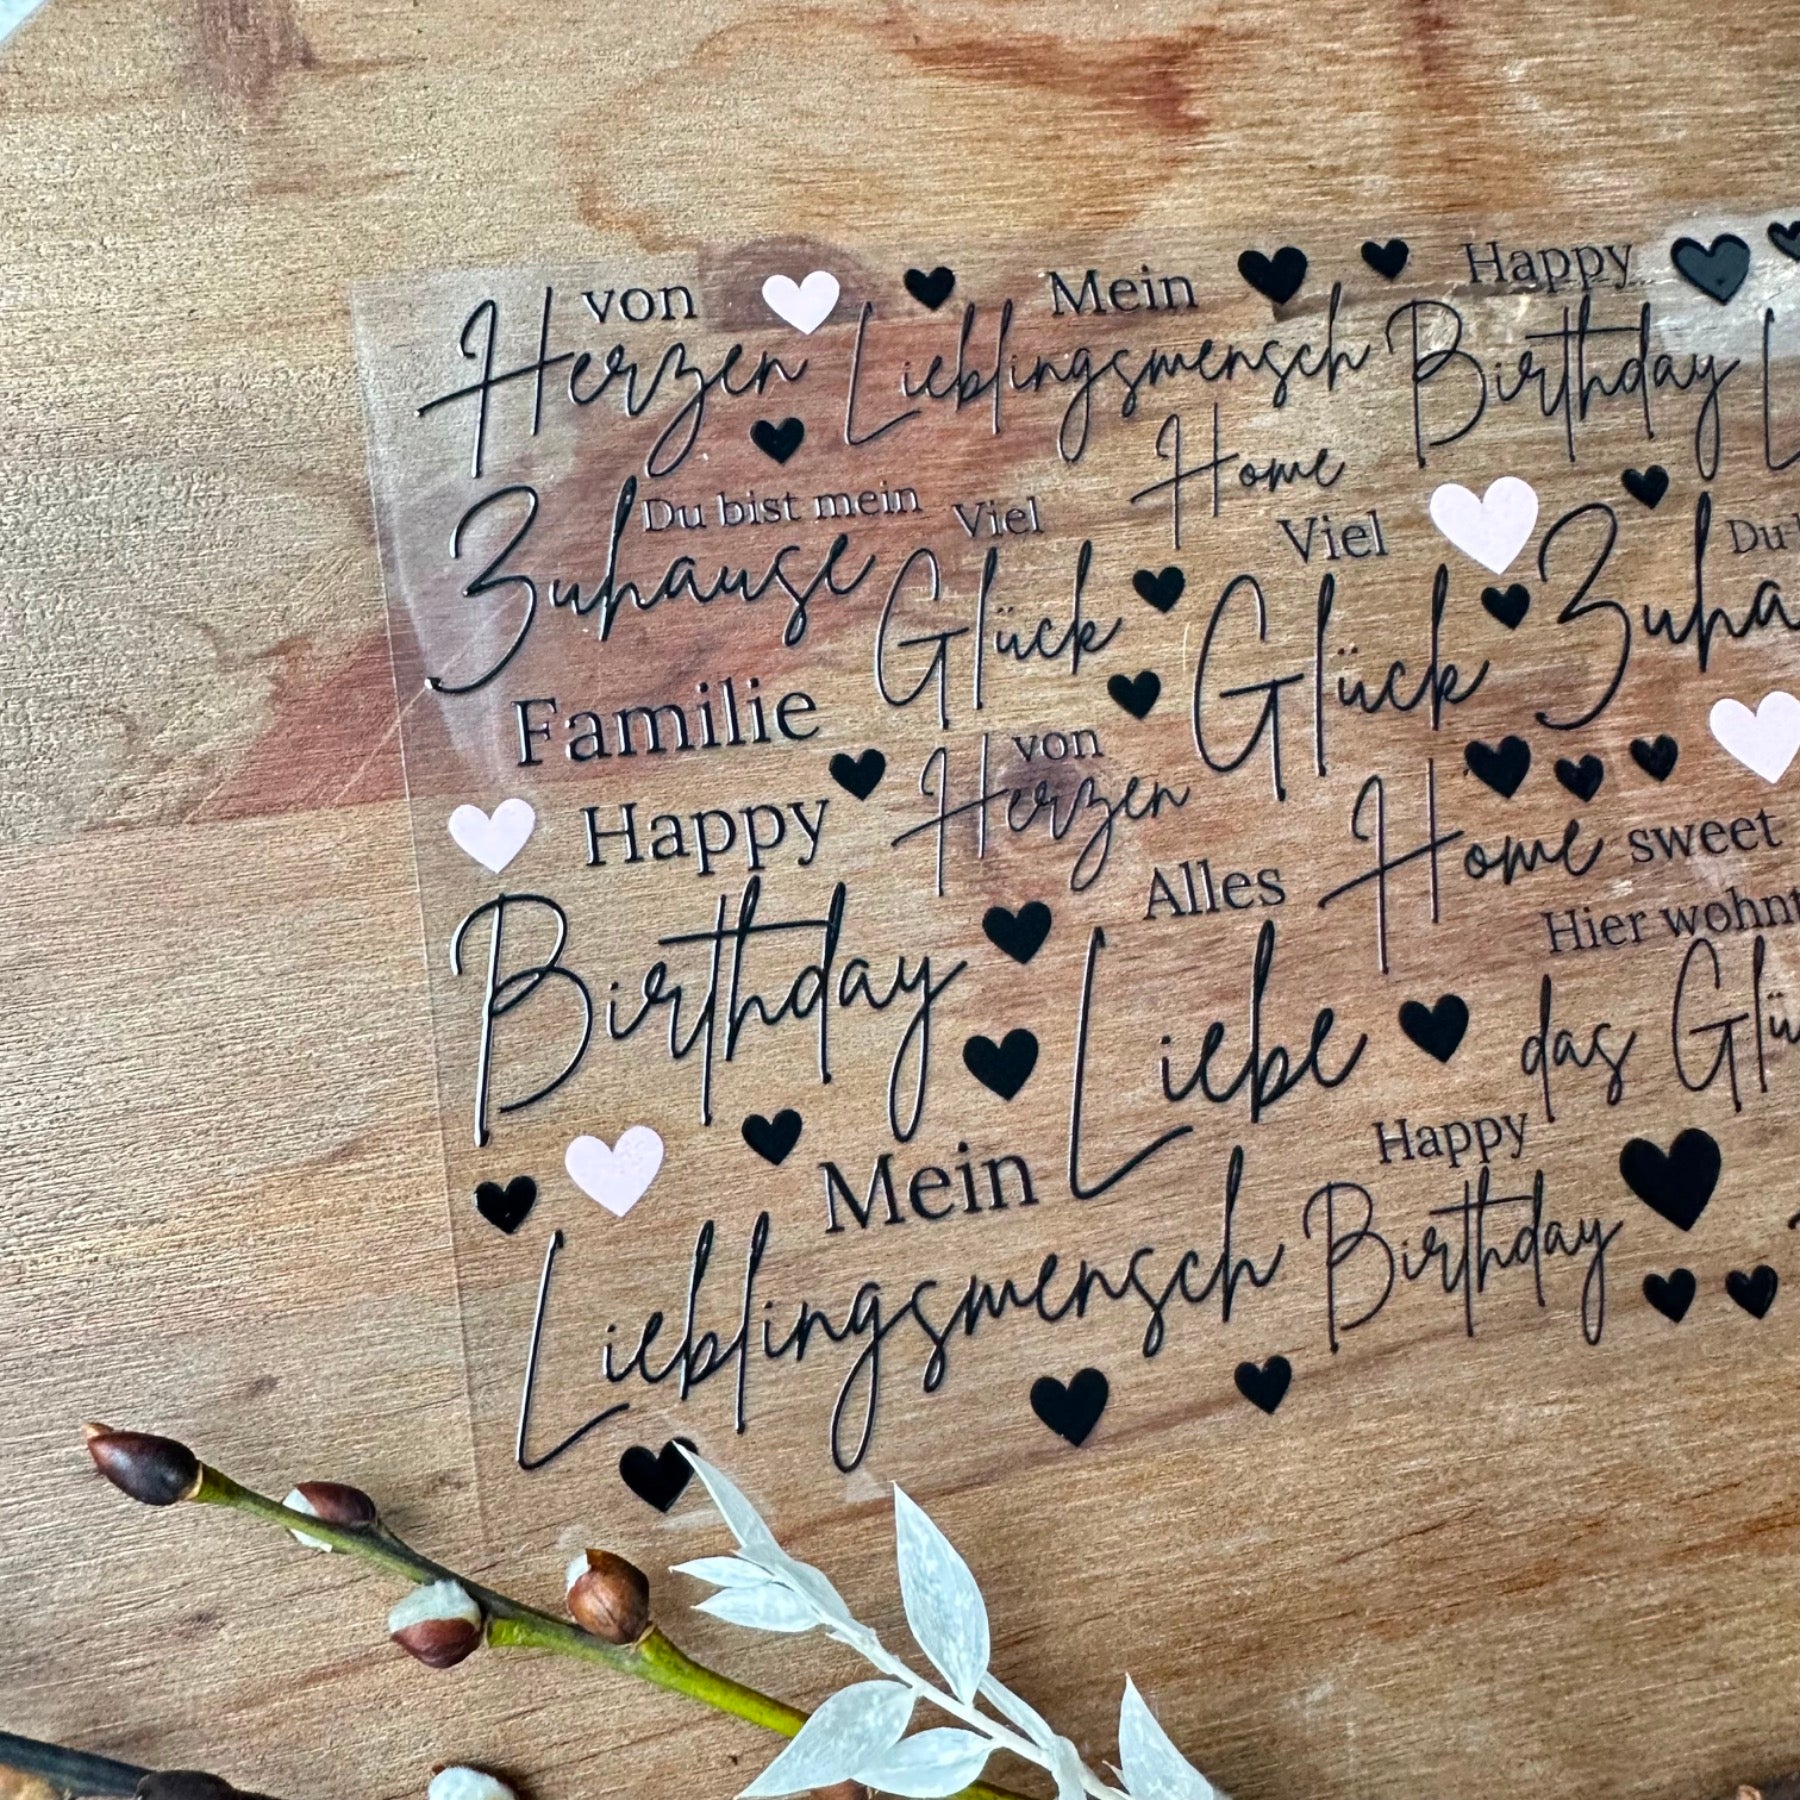 von
Herzen
Mein
Lieblingsmensch
Happy
Birthday
Home
Du bist mein
Zuhause
Viel
Glück
Viel
Glück
Du
Zuha
Familie
Happy
Birthday
von
Herzen
Home sweet
Alles
Liebe
Hier wohnt
das Glü
Mein
Lieblingsmensch
Happy
Birthday